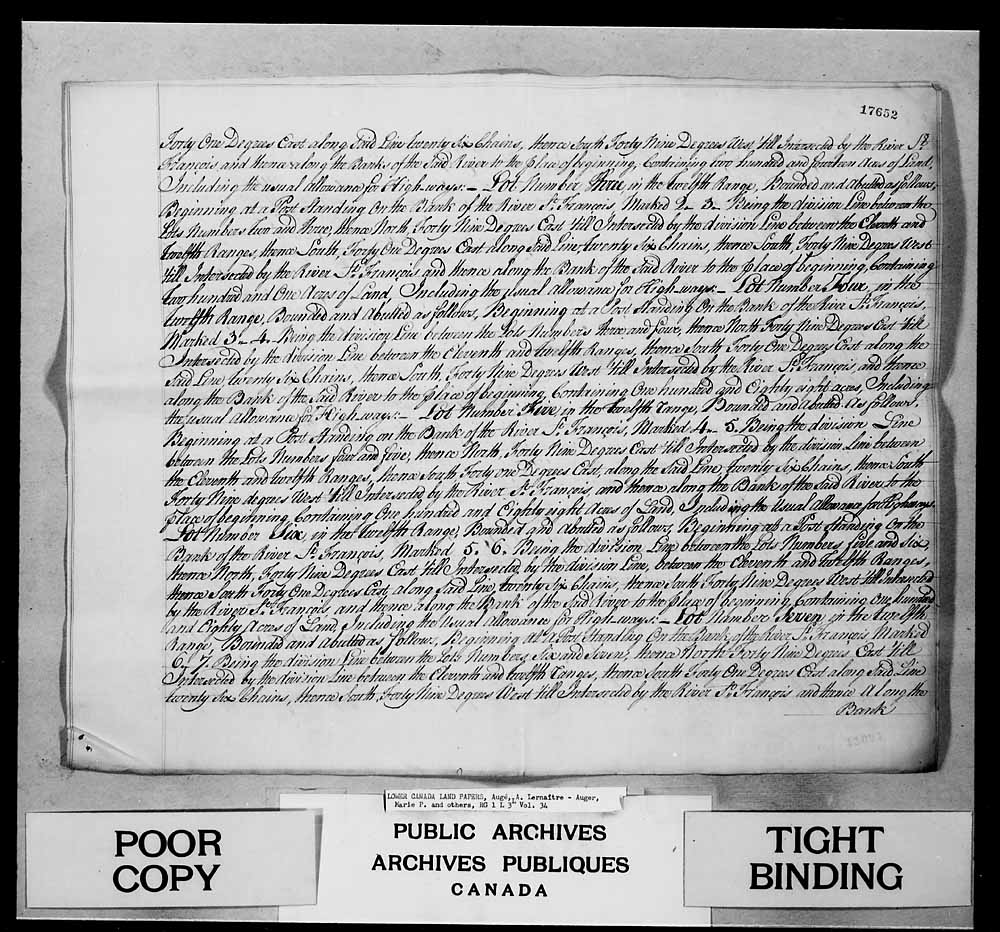 17652
Forty One Degrees East along Said Line twenty Six Chains, thence South Forty Nine Degrees West, till Intersected by the River St.
François and thence along the Banks of the Said River to the place of beginning, Containing two hundred and fourteen Acres of Land,
Including the usual allowance for High-ways:- Lot Number Three in the twelfth Range, Bounded and abutted as follows,
Beginning at a Post Standing On the Bank of the River St. François, Marked 2-3- Being the division Line between the
Lots Numbers two and three, thence North, Forty Nine Degrees East till Intersected by the division Line between the Eleventh and
twelfth Ranges, thence South, Forty One Degrees East along Said Line, twenty Six Chains, thence South, Forty Nine Degrees West
till, Intersected by the River St. François and thence along the Bank of the Said River to the place of beginning, Containing
two hundred and One Acres of Land, Including the usual allowance for High-ways:- Lot Number Four, in the
twelfth Range, Bounded and abutted as follows, Beginning at a Post Standing On the Bank of the River St. François,
Marked 3-4- Being the division Line between the Lots Numbers three and four, thence North Forty Nine Degrees East till
Intersected by the division Line between the Eleventh and twelfth Ranges, thence South Forty One Degrees East along the
Said Line, twenty Six Chains, thence South, Forty Nine Degrees West till Intersected by the River St. François, and thence
along the Bank of the Said River to the place of beginning, Containing One hundred and Eighty eight acres, Including
the usual Allowance for High ways:- Lot Number Five, in the twelfth range, Bounded and abutted As follows,
Beginning at a Post Standing on the Bank of the River St. François, Marked 4-5. Being the division Line
between the Lots Numbers four and five, thence North, Forty Nine Degrees East till Intersected by the division Line between
the Eleventh and twelfth Ranges, thence South Forty one Degrees East, along the Said Line, twenty Six Chains, thence South
Forty Nine degrees West till Intersected by the River St. François, and thence along the Bank of the Said River to the
place of beginning, Containing One hundred and Eighty eight Acres of Land, Including the Usual allowance for Highways.
Lot Number Six, in the twelfth Range, Bounded and abutted as follows, Beginning at a Post standing On the
Bank of the River St. François, Marked 5.6. Being the division Line between the Lots Numbers five and Six,
thence North, Forty Nine Degrees East till Intersected by the division Line, between the Eleventh and twelfth Ranges,
thence South Forty One Degrees East, along Said Line, twenty Six Chains, thence South Forty Nine Degrees West till Intersected
by the River St. François, and thence along the Bank of the Said River to the place of beginning, Containing One hundred
and Eighty Acres of Land, Including the Usual allowance for High-ways:- Lot Number Seven in the twelfth
Range, Bounded and abutted as follows, Beginning at a Post Standing On the Bank of the River St. François Marked
6.7. Being the division Line between the Lots Numbers Six and Seven, thence North Forty Nine Degrees East till
Intersected by the division Line between the Eleventh and twelfth ranges, thence South Forty One Degrees East along Said Line
twenty Six Chains, thence South, Forty Nine Degrees West till Intersected by the River St. François and thence Along the
Bank
LOWER CANADA LAND PAPERS, Augé, A. Lemaître - Auger,
Marie P. and others, RG 1 L 3L Vol. 34
POOR
COPY
PUBLIC ARCHIVES
ARCHIVES PUBLIQUES
CANADA
TIGHT
BINDING